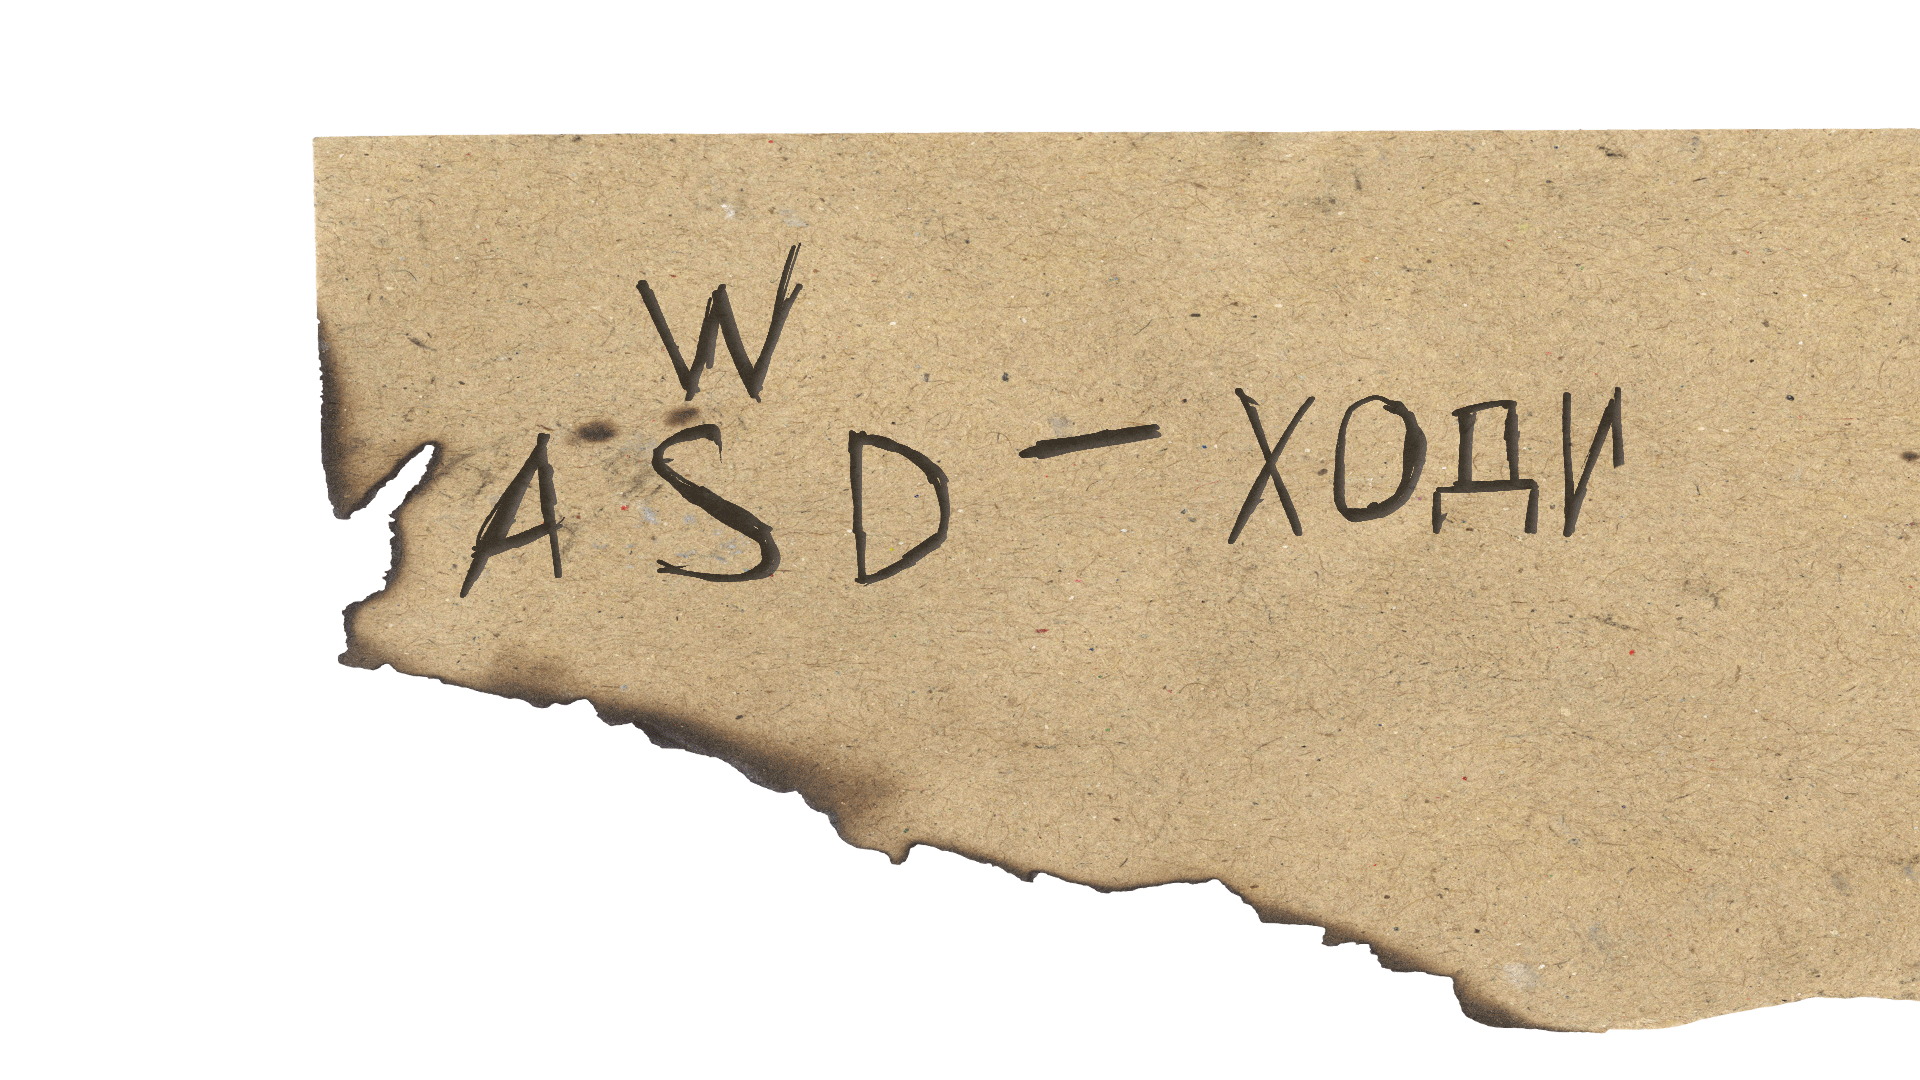 W
A S D - ХОДИ